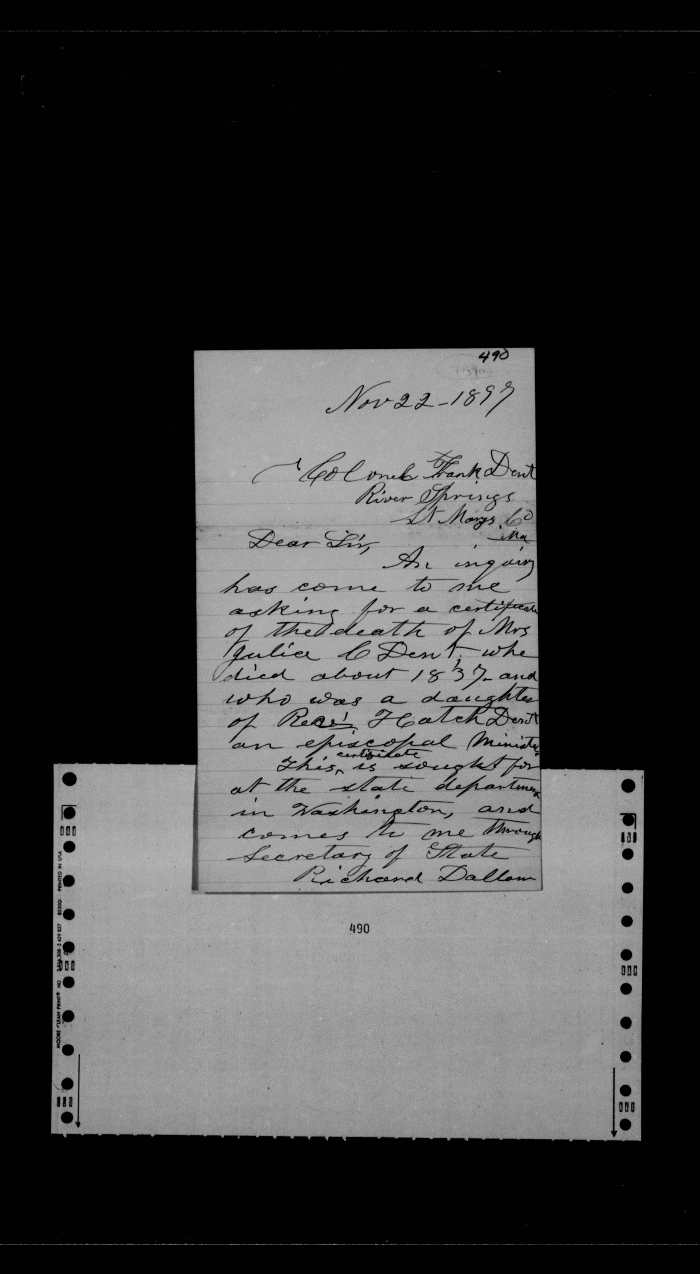 490
Nov 22 - 1897
Colonel Frank Dent
River Springs
St Marys Co
Md
Dear Sir,
An inquiry
has come to me
asking for a certificate
of the death of Mrs
Julia C Dent, who
died about 1837 - and
who was a daughter
of Rev'd Hatch Dent
an episcopal Minister
certificate
This, is sought for
at the state department
in Washington, and
comes to me through
Secretary of State
Richard Dallam
490
PRINTED IN USA
MOORE CLEAN PRINT®